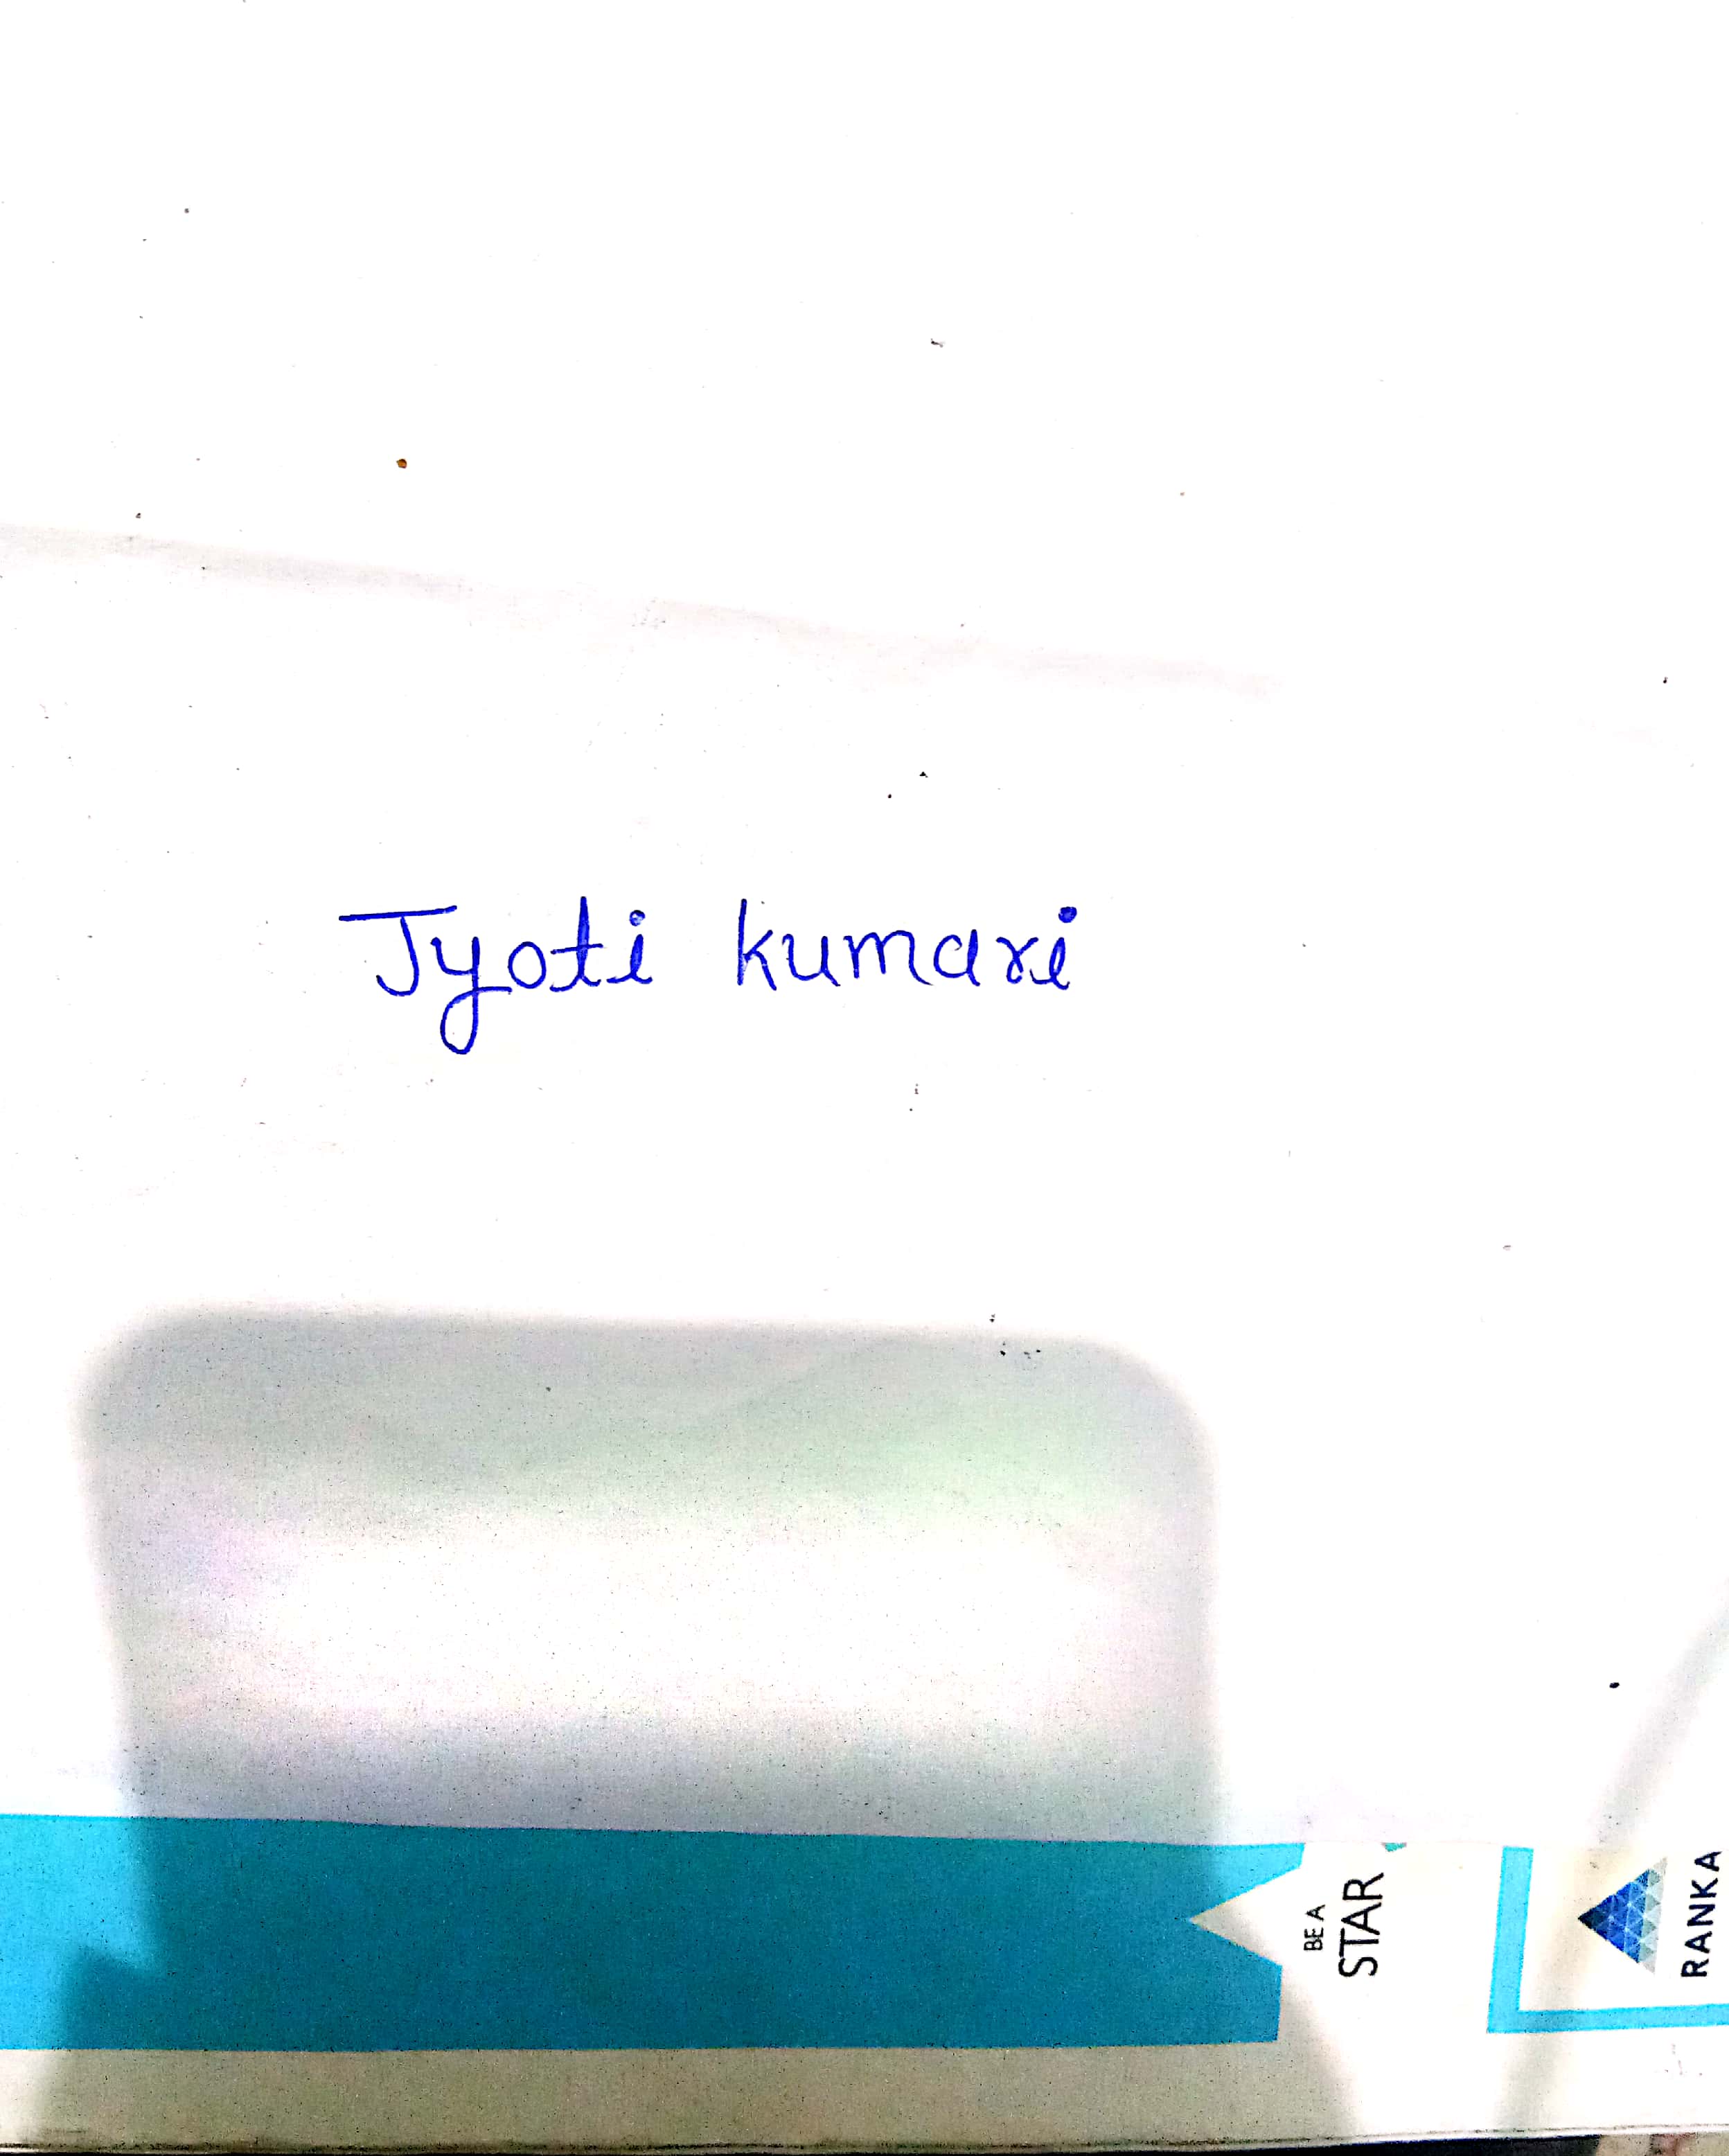 Jyoti kumari
BE A
STAR
RANKA